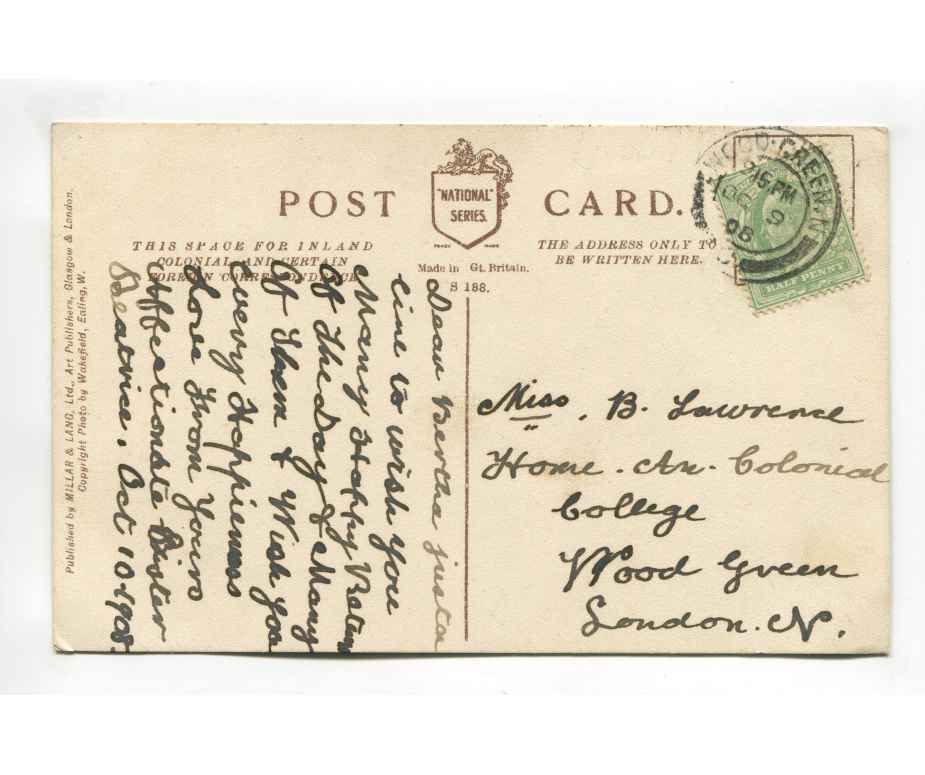 POST CARD.
"NATIONAL"
SERIES.
TRADE MARK
THIS SPACE FOR INLAND
COLONIAL AND CERTAIN
FOREIGN CORRESPONDENCE
THE ADDRESS ONLY TO
BE WRITTEN HERE.
Made in Gt. Britain.
S 188.
WOOD-GREEN.N
15PM
OC 9
08
HALF PENNY
Published by MILLAR & LANG, Ltd., Art Publishers, Glasgow & London.
Copyright Photo by Wakefield, Ealing, W.
Dear Bertha just a
line to wish you
Many Happy Return
Of The Day & Many
Of Them & Wish You
Every Happieness
Love From Yours
Affectionate Sister
Beatrice. Oct 10-1908.
Miss. B. Lawrence
Home. An. Colonial
College
Wood Green
London. N.